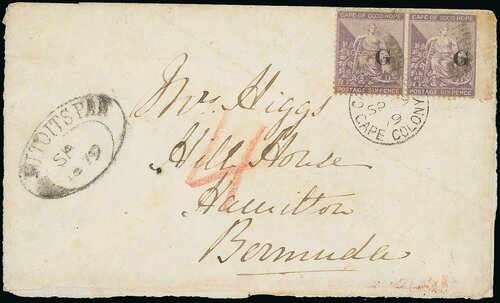 CAPE OF GOOD HOPE
G
POSTAGE SIXPENCE
CAPE OF GOOD HOPE
G
POSTAGE SIXPENCE
SP
79
CAPE COLONY
DUTOITSPAN
SP
79
4
Mrs Higgs
Hill House
Hamilton
Bermuda